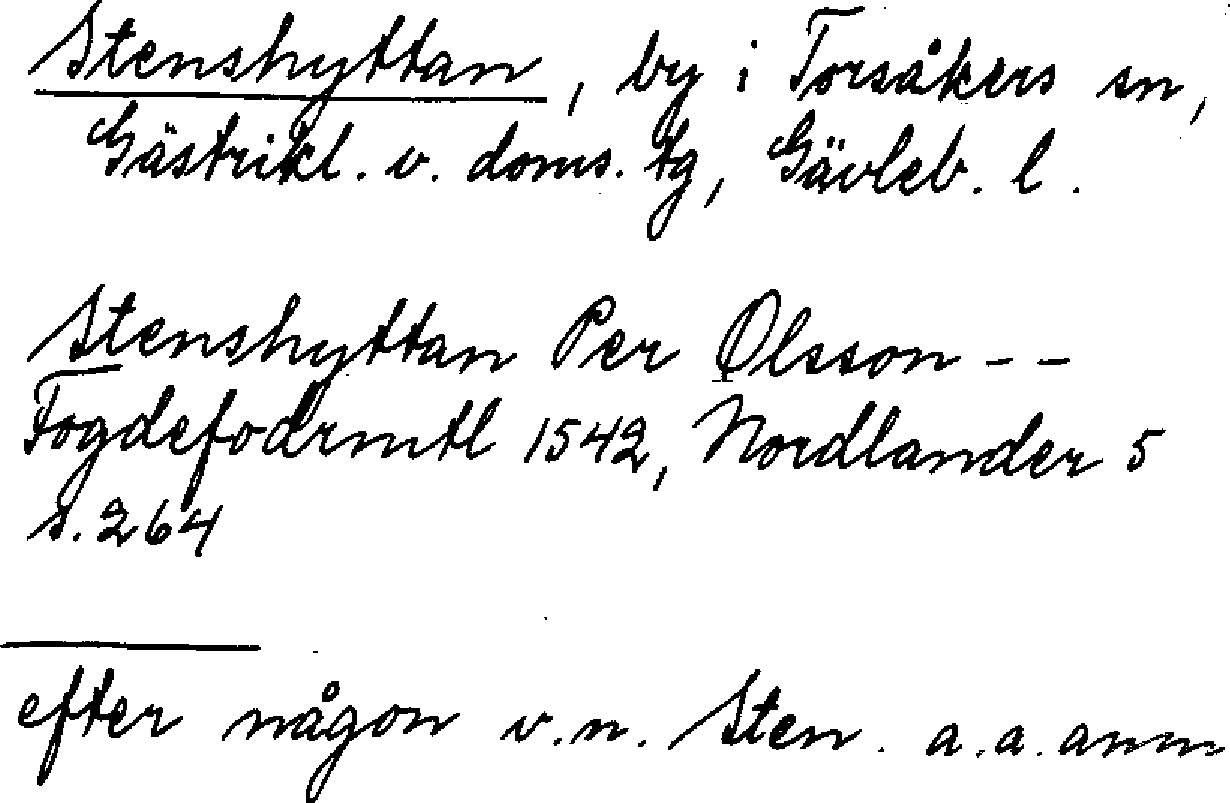 Stenshyttan, by i Torsåkers sn,
Gästrikl. v. doms. tg, Gävleb. l.
Stenshyttan Per Olsson - -
Fogdefodrmtl 1542, Nordlander 5
s. 264
efter någon v.n. Sten. a.a. anm